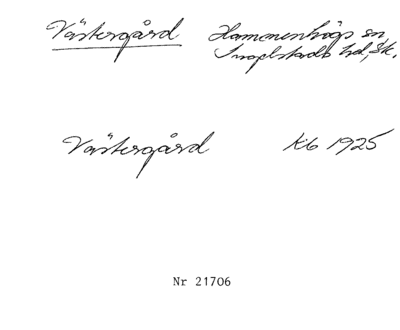 Västergård Hammenhögs sn,
Ingelstads hd, Sk.
Västergård Kb 1925
Nr 21706